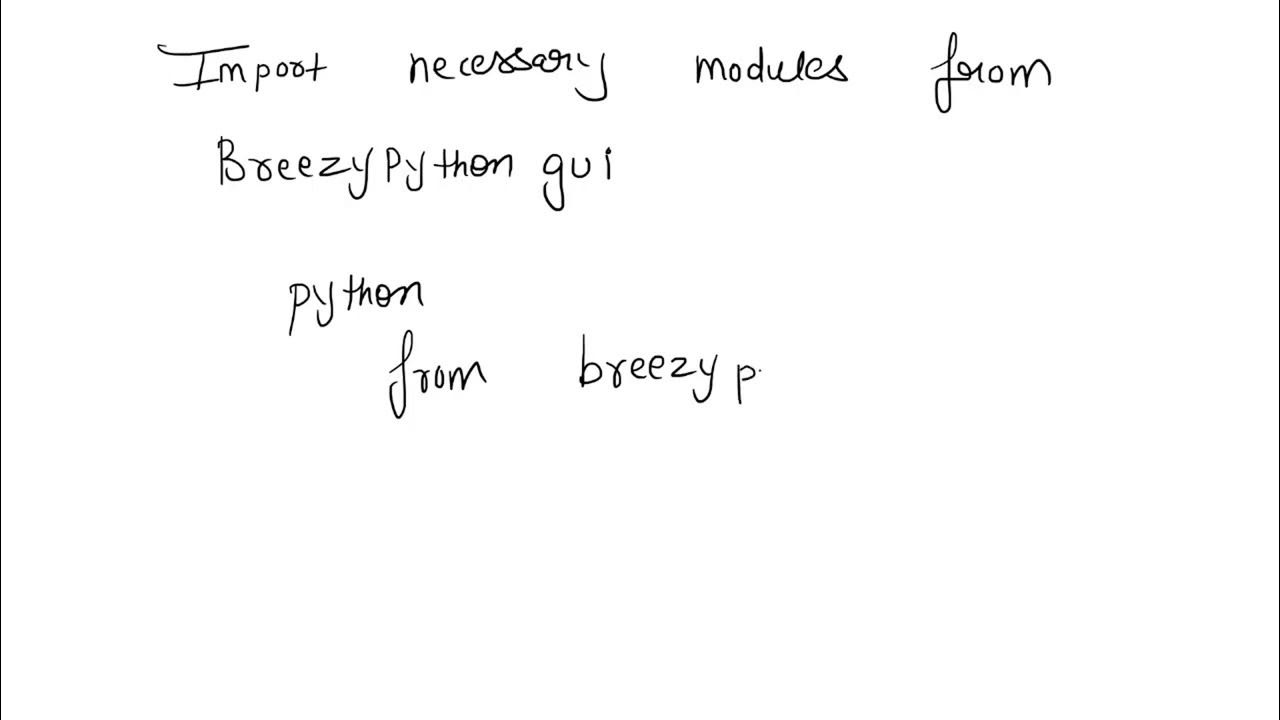 Import necessary modules from
BreezyPython gui
python
from breezy p